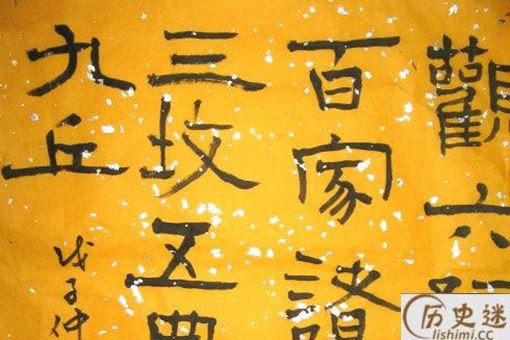 觀六
百家諸
三坆五典
九丘
戊子仲
历史迷
lishimi.cc